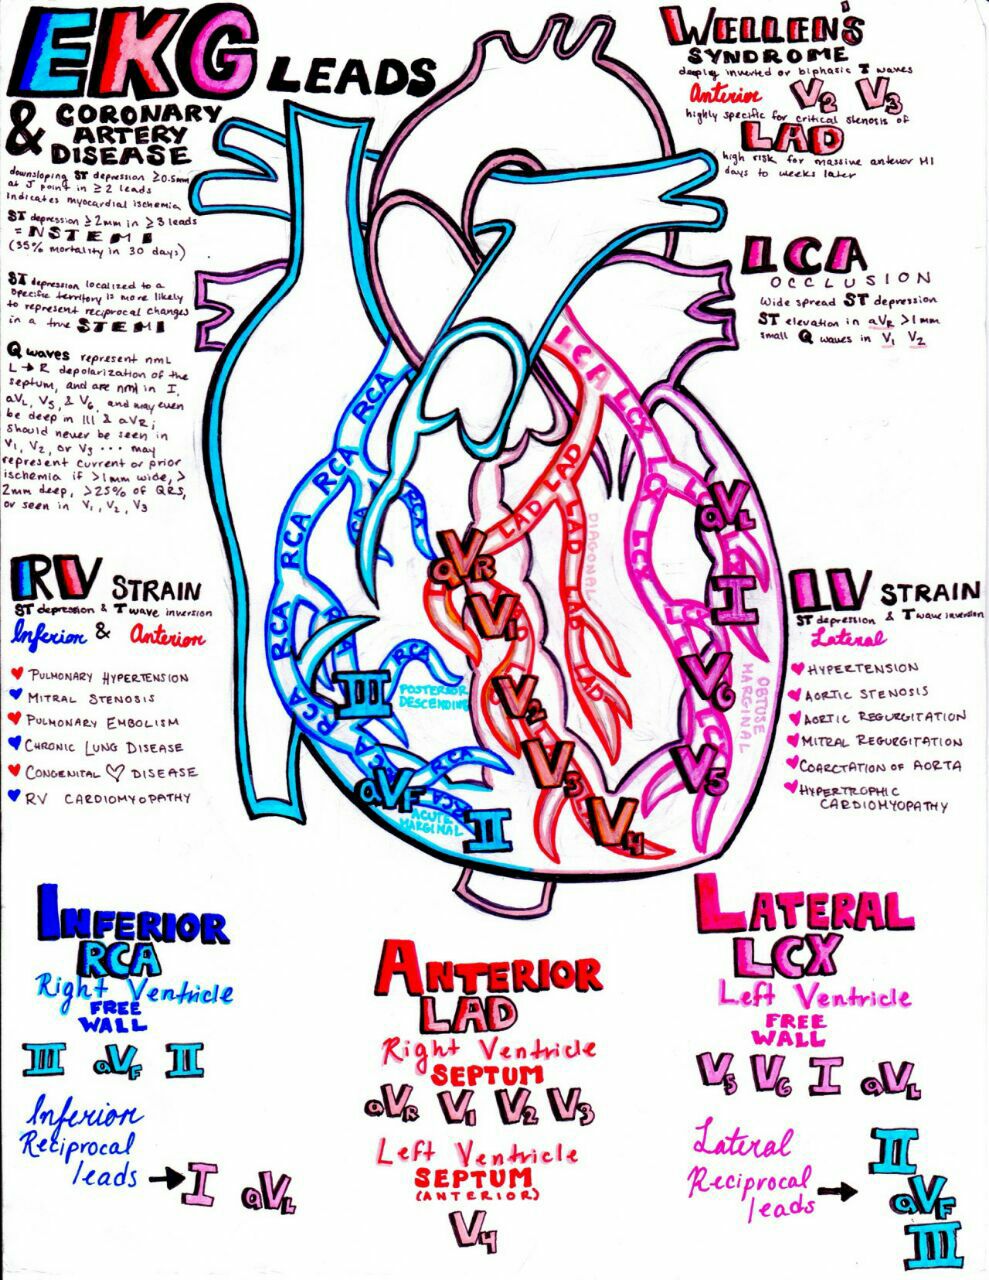 EKG LEADS
& CORONARY
ARTERY
DISEASE
downsloping ST depression ≥0.5mm
at J point in ≥2 leads
indicates myocardial ischemia
ST depression ≥2mm in ≥3 leads
= NSTEMI
(35% mortality in 30 days)
ST depression localized to a
specific territory is more likely
to represent reciprocal changes
in a true STEMI
Q waves represent nml
L→R depolarization of the
septum, and are nml in I,
aVL, V5, & V6, and may even
be deep in III & aVR;
should never be seen in
V1, V2, or V3 ... may
represent current or prior
ischemia if >1mm wide, >
2mm deep, >25% of QRS,
or seen in V1, V2, V3
WELLEN'S
SYNDROME
deeply inverted or biphasic T waves
Anterior V2 V3
highly specific for critical stenosis of
LAD
high risk for massive anterior MI
days to weeks later
LCA
OCCLUSION
wide spread ST depression
ST elevation in aVR >1mm
small Q waves in V1 V2
RV STRAIN
ST depression & T wave inversion
Inferior & Anterior
PULMONARY HYPERTENSION
MITRAL STENOSIS
PULMONARY EMBOLISM
CHRONIC LUNG DISEASE
CONGENITAL ♡ DISEASE
RV CARDIOMYOPATHY
LCA
RCA
RCA
RCA
RCA
RCA
RCA
CA
RCA
RCA
RCA
RCA
LCX
LCX
LCX
LCX
LCX
LAD
LAD
LAD
LAD
LAD
DIAGONAL
OBTUSE
MARGINAL
POSTERIOR
DESCENDING
ACUTE
MARGINAL
aVR
V1
V2
V3
V4
aVL
I
V6
V5
III
aVF
II
LV STRAIN
ST depression & T wave inversion
Lateral
HYPERTENSION
AORTIC STENOSIS
AORTIC REGURGITATION
MITRAL REGURGITATION
COARCTATION OF AORTA
HYPERTROPHIC
CARDIOMYOPATHY
INFERIOR
RCA
Right Ventricle
FREE
WALL
III aVF II
Inferior
Reciprocal
leads → I aVL
ANTERIOR
LAD
Right Ventricle
SEPTUM
aVR V1 V2 V3
Left Ventricle
SEPTUM
(ANTERIOR)
V4
LATERAL
LCX
Left Ventricle
FREE
WALL
V5 V6 I aVL
Lateral
Reciprocal
leads →
II
aVF
III